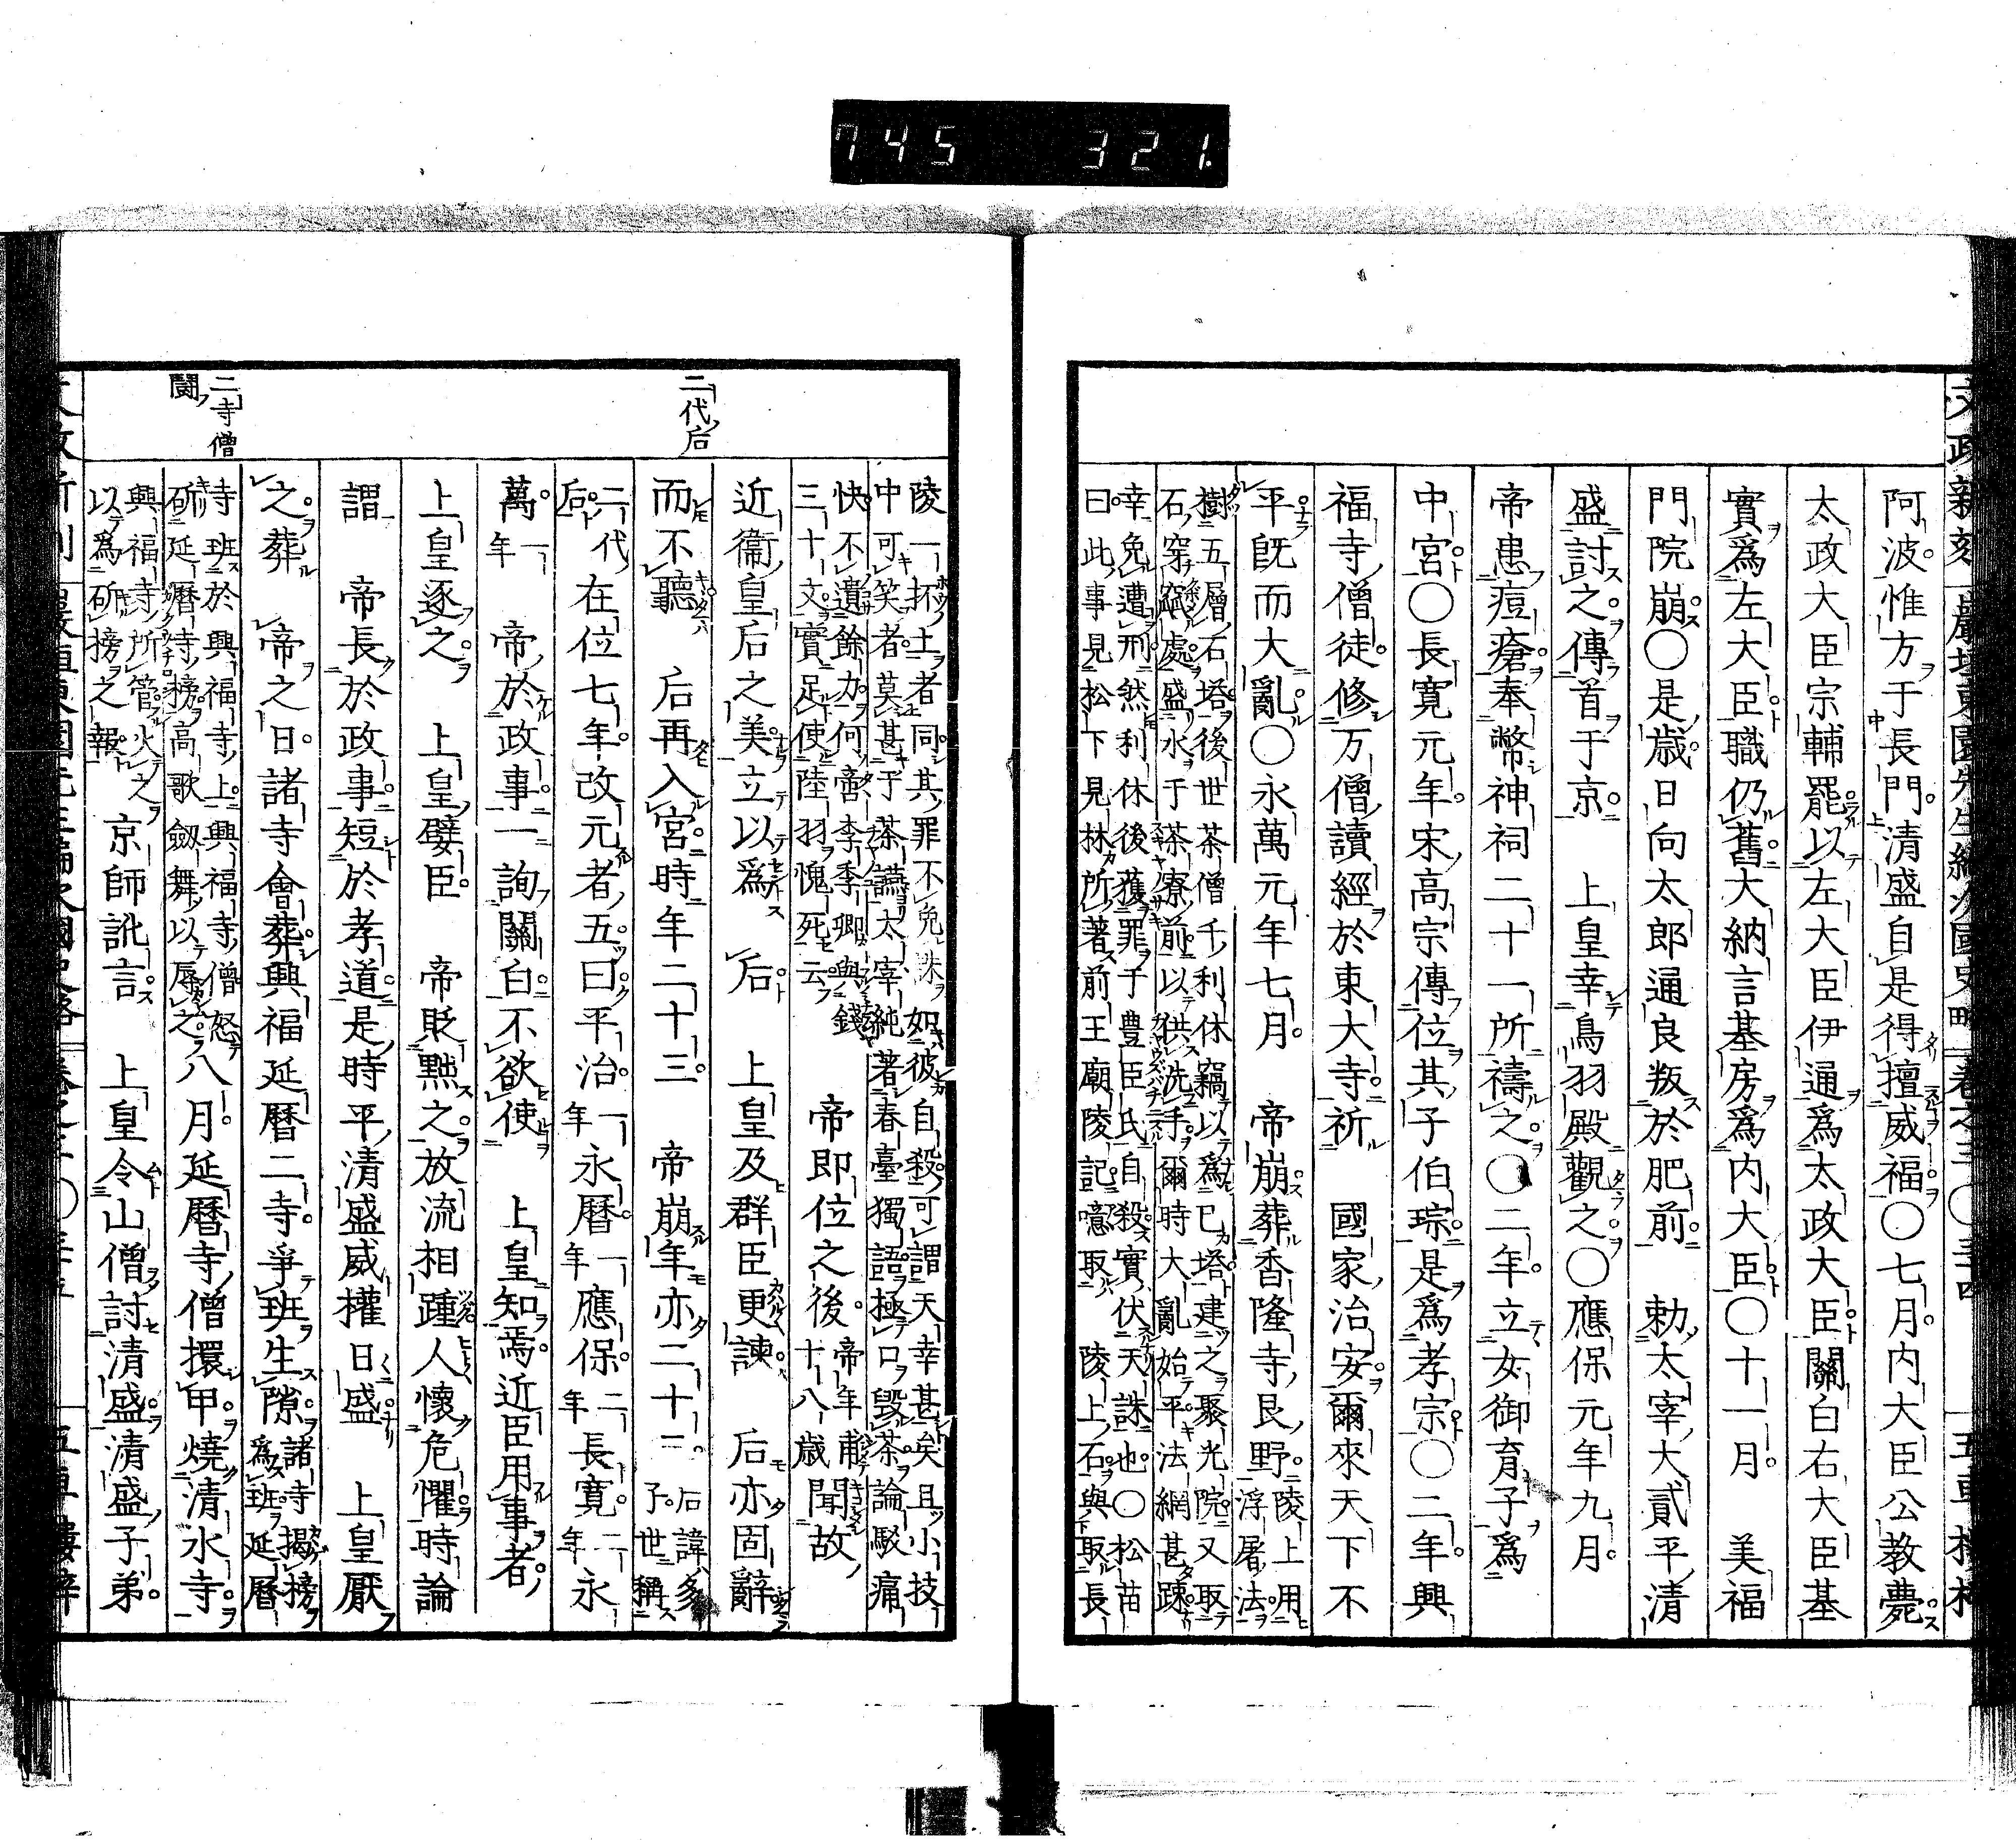 745 321.
阿波惟方于長門清盛自是得擅威福〇七月内大臣公教薨
太政大臣宗輔罷以左大臣伊通爲太政大臣關白右大臣基
實爲左大臣職仍舊大納言基房爲内大臣〇十一月　美福
門院崩〇是歳日向太郎通良叛於肥前　勅太宰大貳平清
盛討之傳首于京　上皇幸鳥羽殿觀之〇應保元年九月
帝患痘瘡奉幣神祠二十一所禱之〇二年立女御育子爲
中宮〇長寛元年宋高宗傳位其子伯琮是爲孝宗〇二年興
福寺僧徒修万僧讀經於東大寺祈　國家治安爾來天下不
平既而大亂〇永萬元年七月　帝崩葬香隆寺艮野
陵上用
浮屠法
樹五層石塔後世茶僧千利休竊以爲己塔建之聚光院又取
石穿竅處盛水于茶寮前以供洗手爾時大亂始平法網甚疎
幸免遭刑然利休後獲罪于豊臣氏自殺實伏天誅也〇松苗
曰此事見松下見林所著前王廟陵記噫取　陵上石與取長
陵一抔土者同其罪不免誅如彼自殺可謂天幸甚矣且小技
中可笑者莫甚于茶讌太宰純著春臺獨語極口毀茶論駁痛
快不遺餘力何啻李季卿與錢
三十文實足使陸羽愧死云
帝即位之後
帝年甫
十八歳
聞故
近衞皇后之美立以爲　后　上皇及群臣更諫　后亦固辭
而不聽　后再入宮時年二十三　帝崩年亦二十二
后諱多
子世稱
二代
后
在位七年改元者五曰平治
一
年
永曆
一
年
應保
二
年
長寛
二
年
永
萬
一
年
帝於政事一詢關白不欲使　上皇知焉近臣用事者
上皇逐之　上皇嬖臣　帝貶黜之放流相踵人懷危懼時論
謂　帝長於政事短於孝道是時平清盛威權日盛　上皇厭
之葬　帝之日諸寺會葬興福延曆二寺爭班生隙
諸寺揭榜
爲班延曆
寺班於興福寺上興福寺僧怒
斫延曆寺榜高歌劔舞以辱之
八月延曆寺僧擐甲燒清水寺
興福寺所管火之
以爲斫榜之報
京師訛言　上皇令山僧討清盛清盛子弟
二代后
二寺僧
鬪